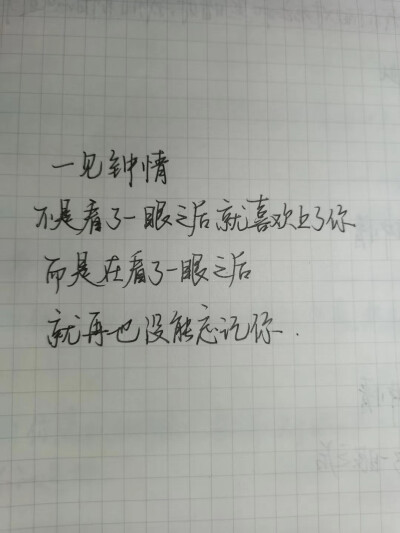 一见钟情
不是看了一眼之后就喜欢上了你
而是在看了一眼之后
就再也没能忘记你.